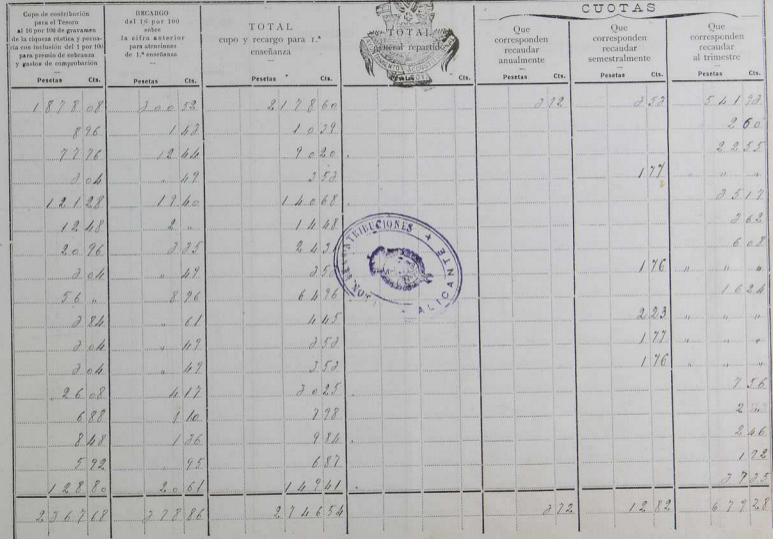 CUOTAS
Cupo de contribución para el Tesoro al 16 por 100 de gravamen de la riqueza rústica y pecuaria con inclusión del 1 por 100 para premio de cobranza y gastos de comprobación
RECARGO del 16 por 100 sobre la cifra anterior para atenciones de 1.ª enseñanza
TOTAL cupo y recargo para 1.ª enseñanza
TOTAL general repartido
Que corresponden recaudar anualmente
Que corresponden recaudar semestralmente
Que corresponden recaudar al trimestre
Pesetas Cts. Pesetas Cts. Pesetas Cts. Pesetas Cts. Pesetas Cts. Pesetas Cts.
1878 08 300 52 2178 60 3 72 3 53 541 93
8 96 1 43 10 39 2 60
77 76 12 44 90 20 22 55
3 04 " 49 3 53 1 77 " " "
121 28 19 40 140 68 35 17
12 48 2 " 14 48 3 62
20 96 3 35 24 3 6 08
3 04 " 49 3 5 1 76 " " "
56 " 8 96 64 96 16 24
3 84 " 61 4 45 2 23 " " "
3 04 " 49 3 53 1 77 " " "
3 04 " 49 3 53 1 76 " " "
26 08 4 17 30 25 7 56
6 88 1 10 7 98 2
8 48 1 36 9 84 2 46
5 92 95 6 87 1 72
128 80 20 61 149 41 37 35
2367 68 378 86 2746 54 3 72 12 82 679 28
CONTRIBUCIONES + ALICANTE